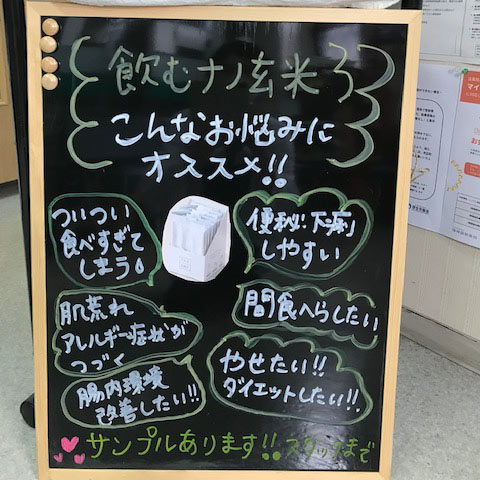 飲むナノ玄米
こんなお悩みに
オススメ!!
ついつい
食べすぎて
しまう。
便秘・下痢
しやすい
肌荒れ
アレルギー症状が
つづく
間食へらしたい
腸内環境
改善したい!!
やせたい!!
ダイエットしたい!!
サンプルあります!! スタッフまで